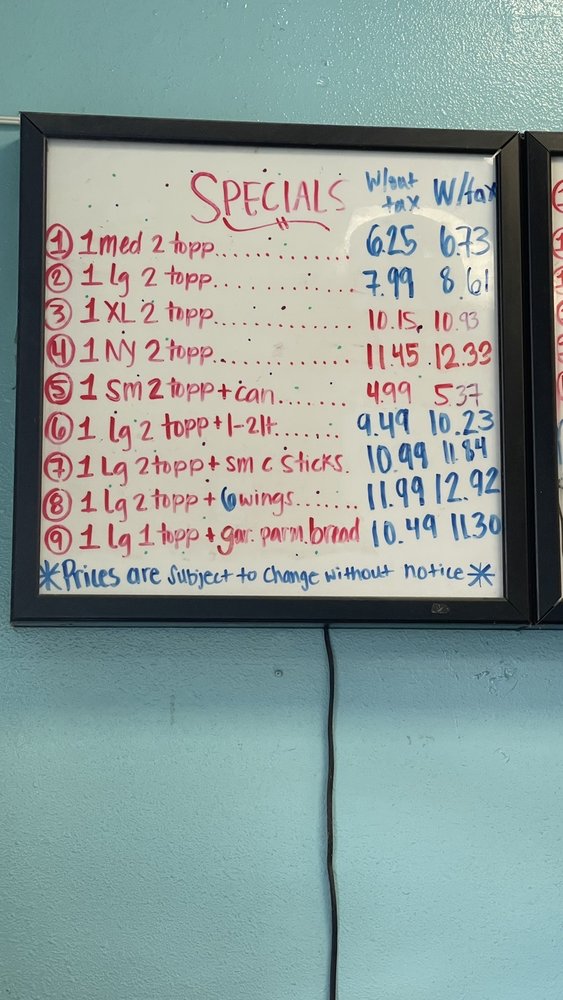 SPECIALS W/out tax W/tax
① 1 med 2 topp.............. 6.25 6.73
② 1 lg 2 topp.............. 7.99 8.61
③ 1 XL 2 topp.............. 10.15 10.93
④ 1 NY 2 topp.............. 11.45 12.33
⑤ 1 Sm 2 topp + can....... 4.99 5.37
⑥ 1 lg 2 topp + 1-2lt....... 9.49 10.23
⑦ 1 Lg 2 topp + sm c sticks. 10.99 11.84
⑧ 1 Lg 2 topp + 6 wings....... 11.99 12.92
⑨ 1 lg 1 topp + gar. parm. bread 10.49 11.30
*Prices are Subject to Change without notice*